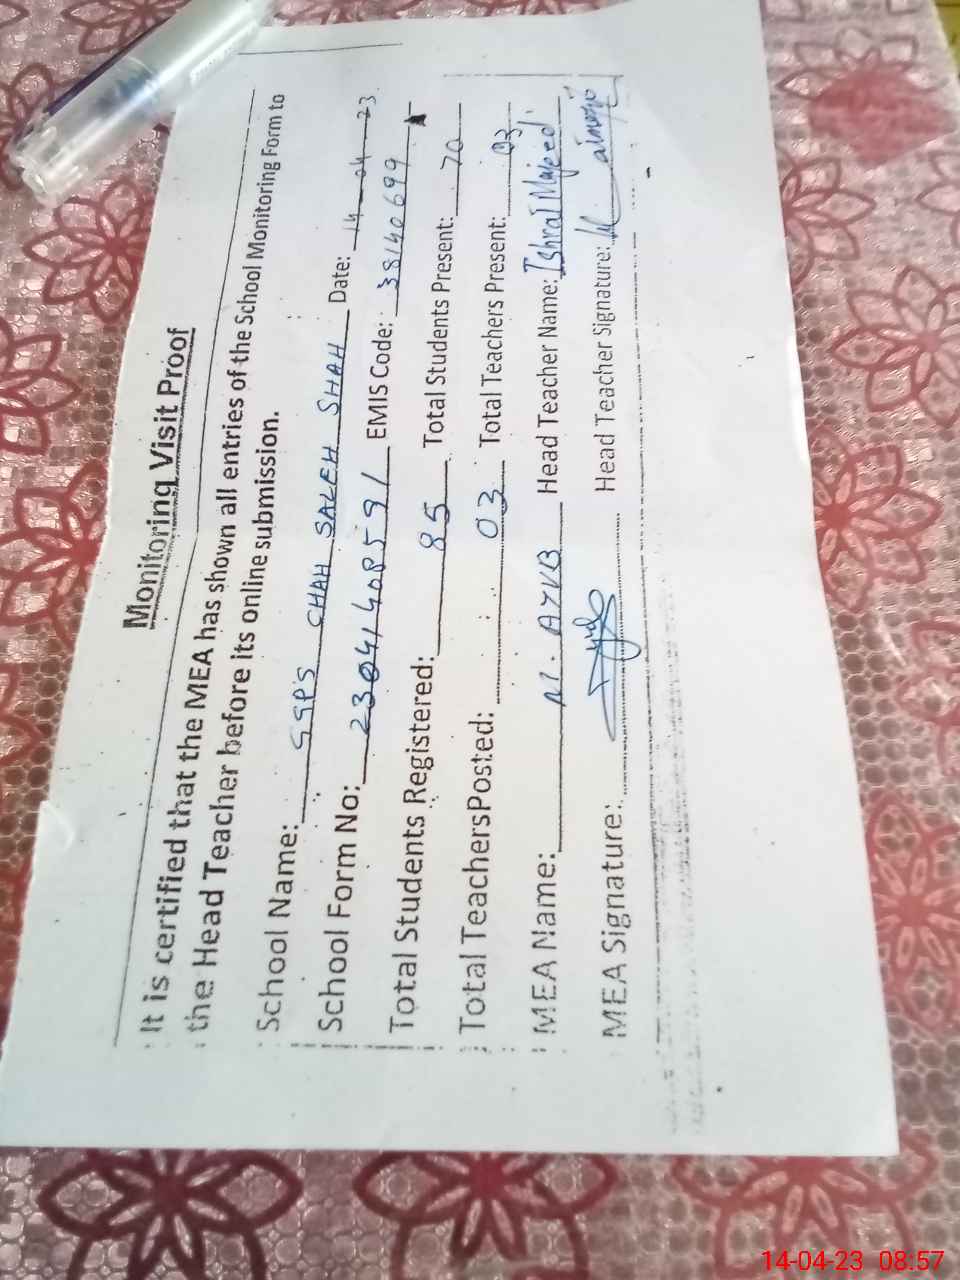 Monitoring Visit Proof
It is certified that the MEA has shown all entries of the School Monitoring Form to
the Head Teacher before its online submission.
School Name: GGPS CHAH SALEH SHAH Date: 14-04-23
School Form No: 23041408591 EMIS Code: 38140699
Total Students Registered: 85 Total Students Present: 70
Total TeachersPosted: 03 Total Teachers Present: 03
MEA Name: M. AYUB Head Teacher Name: Ishrat Majeed
MEA Signature: Head Teacher Signature:
14-04-23 08:57